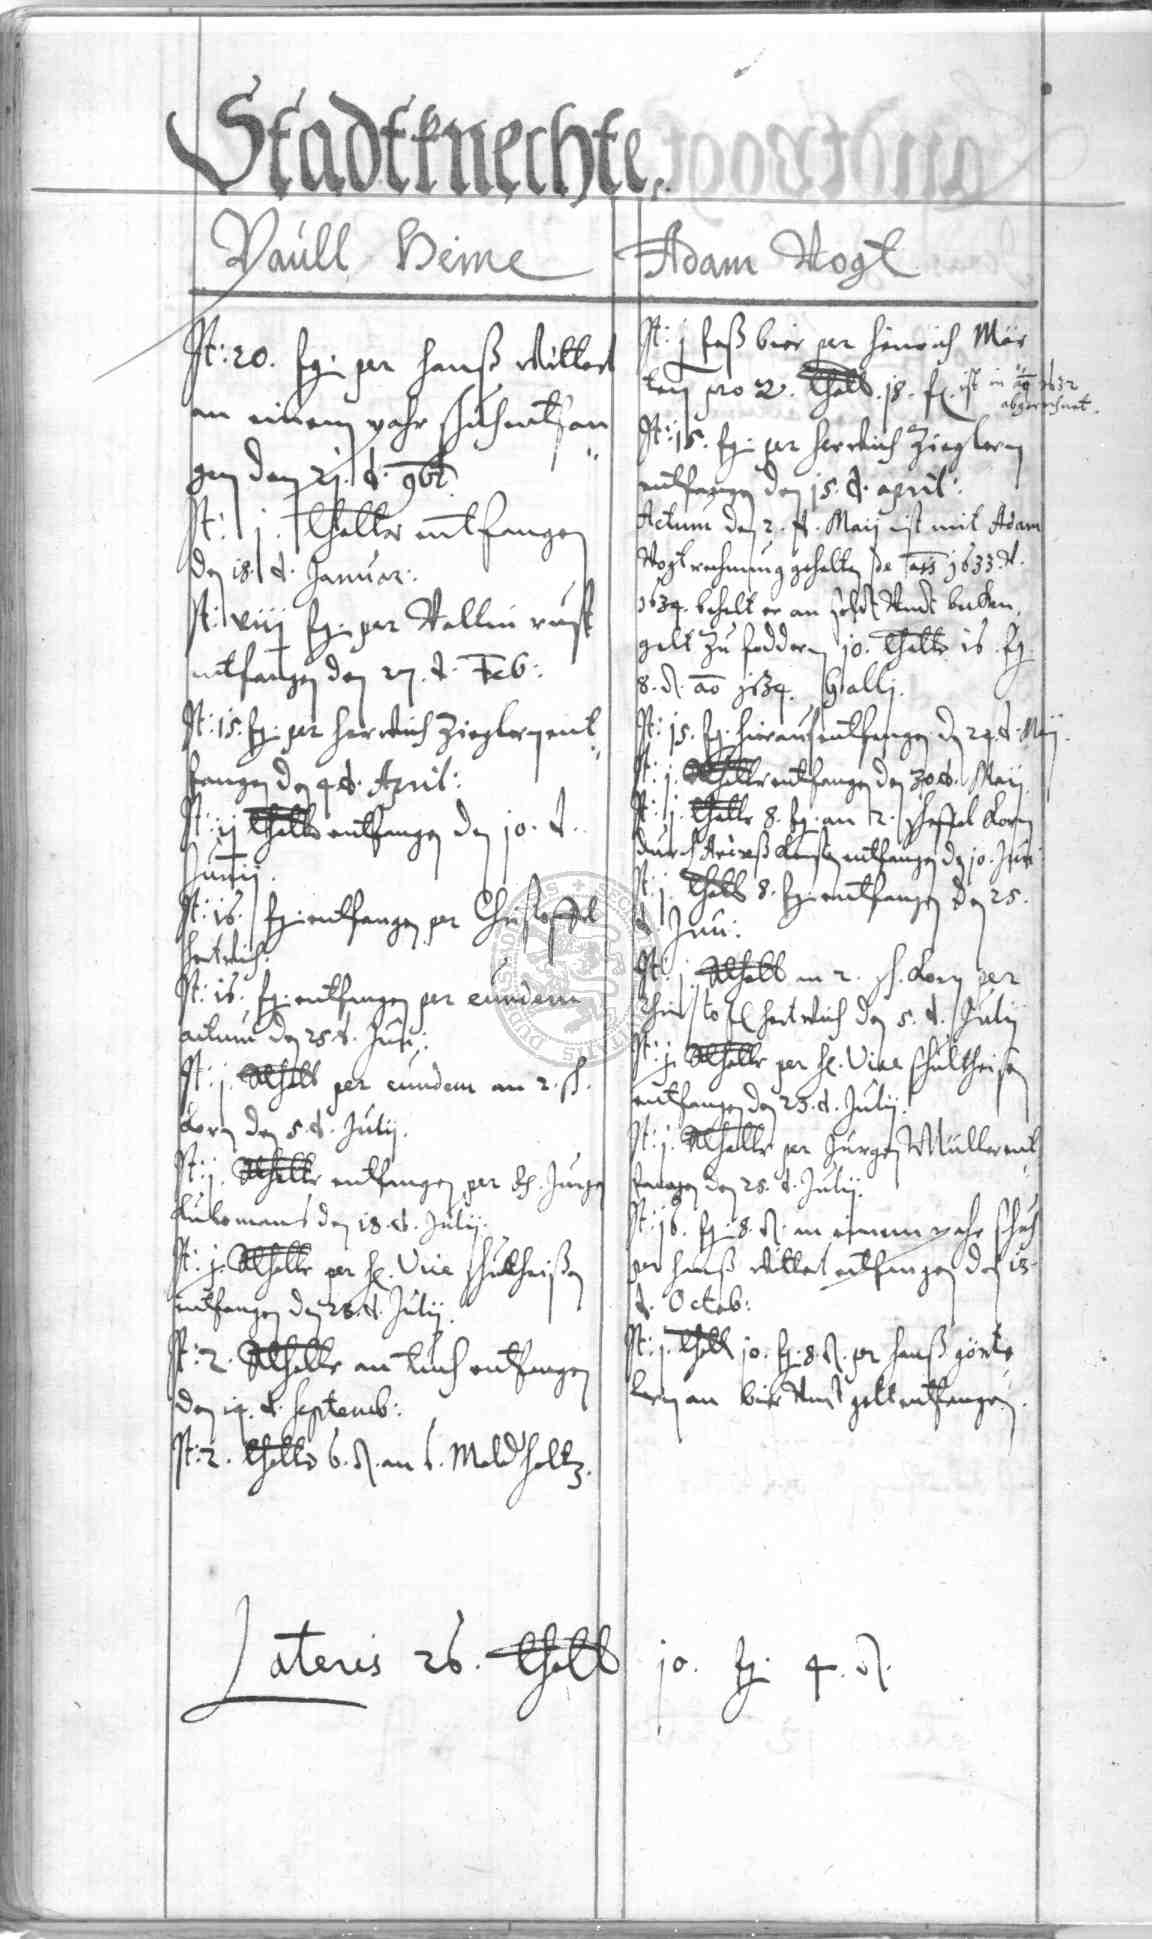 Stadtknechte.
Paull Heine
It: 20. fg: per Hanß Wittert
an einem pahr schuh entfan
gen den 21. d. 9bt.
It: j. thaller entfangen
den 18. d. Januar:
It: viij fg: per Vallin rust
entfangen den 27. d. Feb:
It: 15. fg: per Herrlich Zieglern ent
fangen den 4 d. April:
It: ij thaller entfangen den 10. d.
Junij.
It: 16. fg: entfangen per Christoffel
Hertwich.
It: 16. fg: entfangen per eundem
actum den 25 d. Juni:
It: j. Rthall per eundem an 2. sch.
Korn den 5. d. Julij.
It: j. Rthallr entfangen per Jurge
den 18. d. Julij.
It: j. Rthallr per H. Vice schultheißen
entfangen den 28. d. Julij.
It: 2. Rthallr an tuch entfangen
den 19. d. Septemb:
It: 2. thaller 6. d. an 6. Mald holtz.
Adam Vogt
It: j faß bier per Heinrich Mär
ten pro 2. thall. 18. fg. ist in ao 1632
abgerechnet.
It: 15. fg: per Herrlich Zieglern
entfangen den 15. d. april:
Actum den 2. d. Maij ist mit Adam
Vogt rechnung gehalten de ao 1633. d.
1634. behelt er an
gelt zu foddern 10. thaller 16. fg.
8. d. ao 1634. Walli.
It: 15. fg. hierauf entfangen den 24. d. Maij.
It: j. Rthallr entfangen den 30 d. Maij
It: j. thallr 8. fg. an 2. scheffel Korn
durch entfangen den 10. Juni
It: j. thall 8. fg. entfangen den 25.
d. Juni:
It: j. Rthall an 2. sch. Korn per
Christoffel Hertwich den 5. d. Julij
It: j. Rthallr per H. Vice schultheisen
entfangen den 23. d. Julij.
It: j. Rthallr per Jurgen Müller ent
fangen den 28. d. Julij.
It: 16. fg. 8. d. an einem pahr schuh
per Hanß Wittert entfangen den 18.
d. Octob:
It: j. thall 10. fg. 8. d. per Hanß
an bier Vndt gelt entfangen.
Lateris 26. thall 10. fg. 4. d.